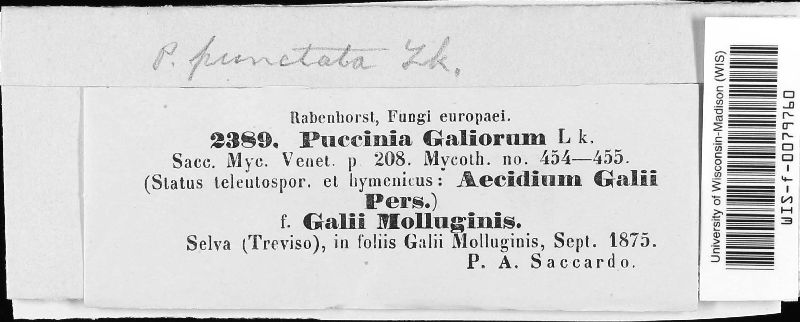 P. punctata Lk.
Rabenhorst, Fungi europaei.
2389. Puccinia Galiorum Lk.
Sacc. Myc. Venet. p 208. Mycoth. no. 454—455.
(Status teleutospor. et hymenicus: Aecidium Galii
Pers.)
f. Galii Molluginis.
Selva (Treviso), in foliis Galii Molluginis, Sept. 1875.
P. A. Saccardo.
University of Wisconsin-Madison (WIS)
WIS-f-0079760